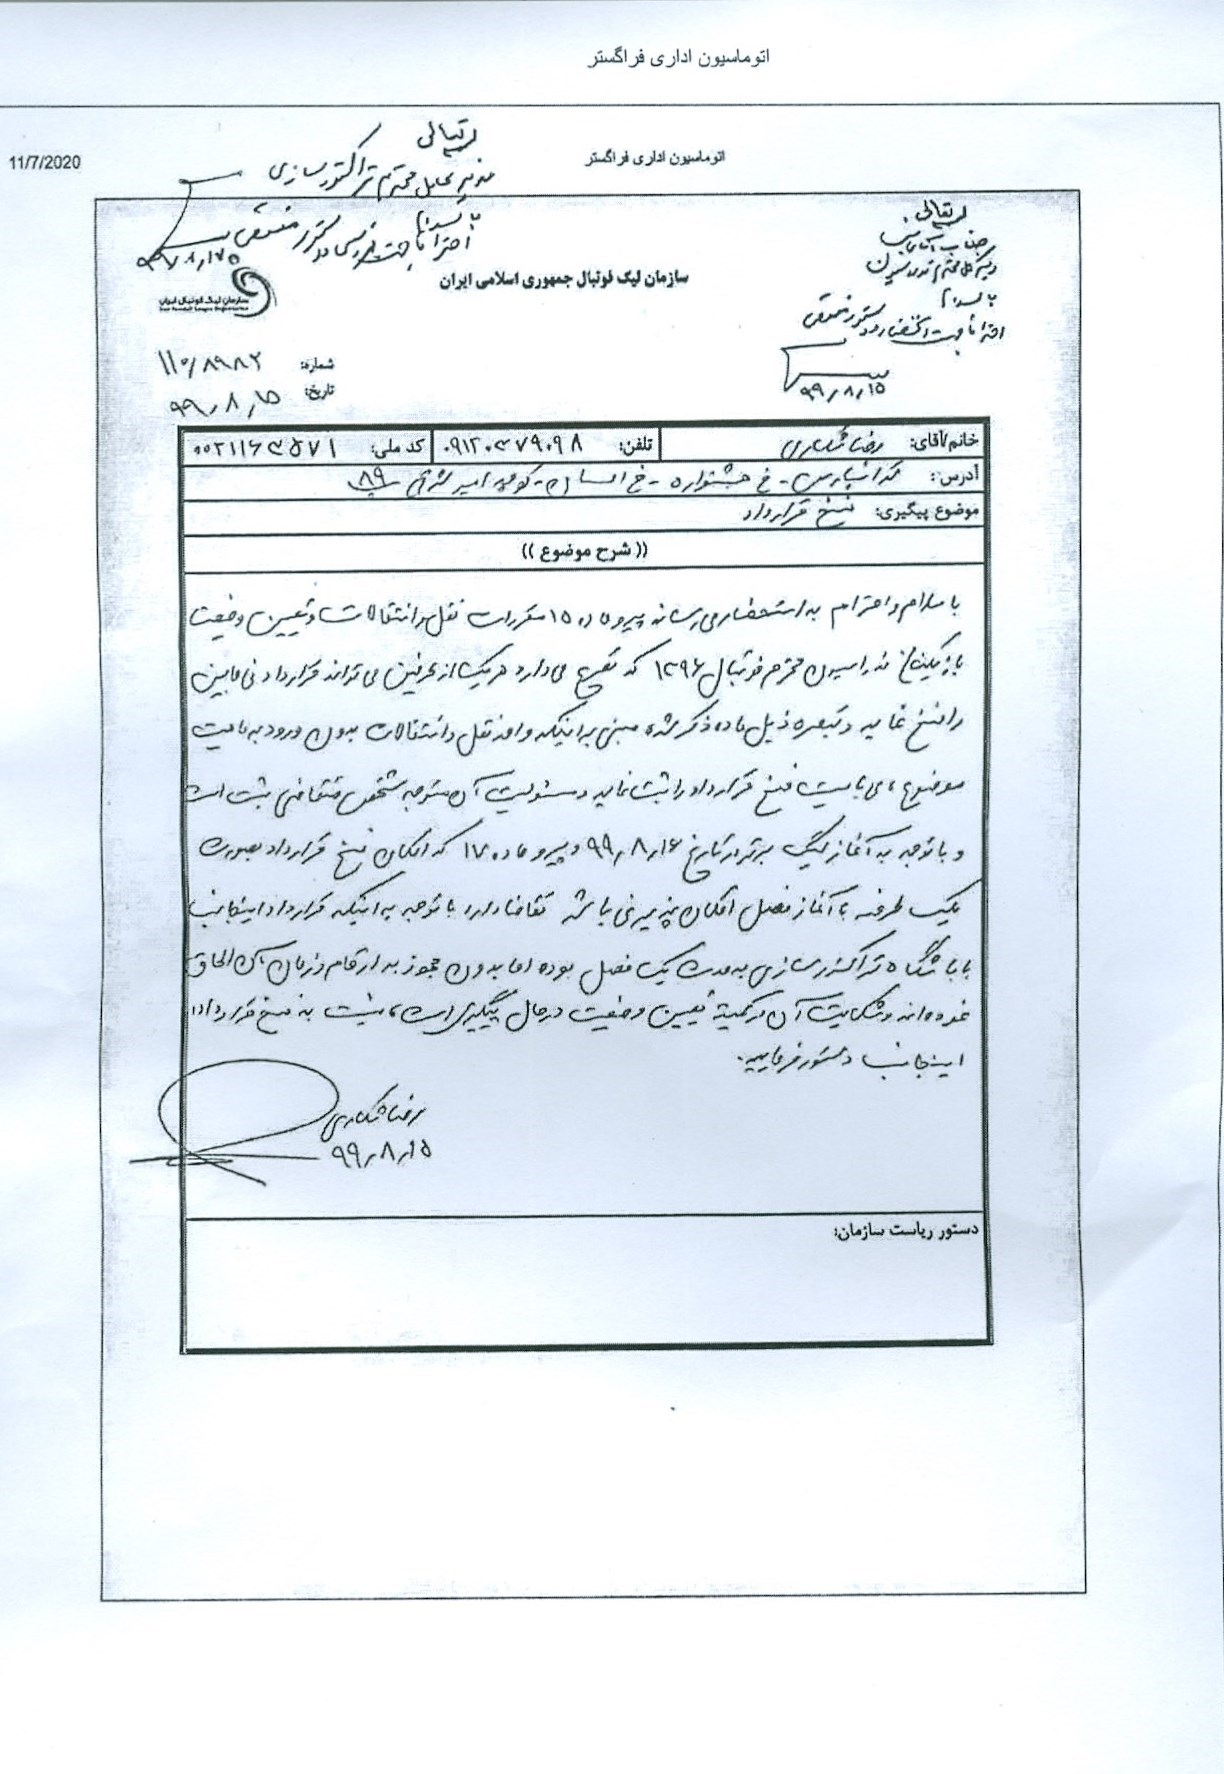 اتوماسیون اداری فراگستر
اتوماسیون اداری فراگستر
11/7/2020
بسمه تعالی
مدیر عامل محترم تراکتورسازی
با سلام
احتراما جهت بررسی و دستور مقتضی
بسمه تعالی
جناب آقای
دبیر کل محترم فدراسیون
با سلام
احتراما جهت استحضار و دستور مقتضی
۹۹/۸/۱۵
سازمان لیگ فوتبال جمهوری اسلامی ایران
سازمان لیگ فوتبال ایران
شماره: ۱۱۰/۸۹۸۲
تاریخ: ۹۹/۸/۱۵
خانم/آقای: رضا شکاری تلفن: ۰۹۱۲۰۴۷۹۰۹۸ کد ملی: ۰۰۲۱۱۶۳۵۷۱
آدرس: - خ جشنواره - خ - کوچه امیر اشرفی پ ۸۹
موضوع پیگیری: فسخ قرارداد
(( شرح موضوع ))
با سلام و احترام به استحضار می رساند پیرو ماده ۱۵ مقررات نقل و انتقالات و تعیین وضعیت
بازیکنان فدراسیون محترم فوتبال ۱۳۹۶ که تصریح می دارد هریک از طرفین می تواند قرارداد فی مابین
را فسخ نماید و تبصره ذیل ماده ذکر شده مبنی بر اینکه واحد نقل و انتقالات بدون ورود به ماهیت
موضوع، می بایست فسخ قرارداد را ثبت نماید و مسئولیت آن متوجه شخص متقاضی ثبت است
و با توجه به آغاز لیگ برتر در تاریخ ۹۹/۸/۱۶ و پیرو ماده ۱۷ که امکان فسخ قرارداد بصورت
یک طرفه با آغاز فصل امکان پذیر نمی باشد تقاضا دارد با توجه به اینکه قرارداد اینجانب
با باشگاه تراکتورسازی به مدت یک فصل بوده اما بدون مجوز به ارقام و زمان آن الحاق
نموده اند و شکایت آن در کمیته تعیین وضعیت در حال پیگیری است، نسبت به فسخ قرارداد
اینجانب دستور فرمایید.
رضا شکاری
۹۹/۸/۱۵
دستور ریاست سازمان: